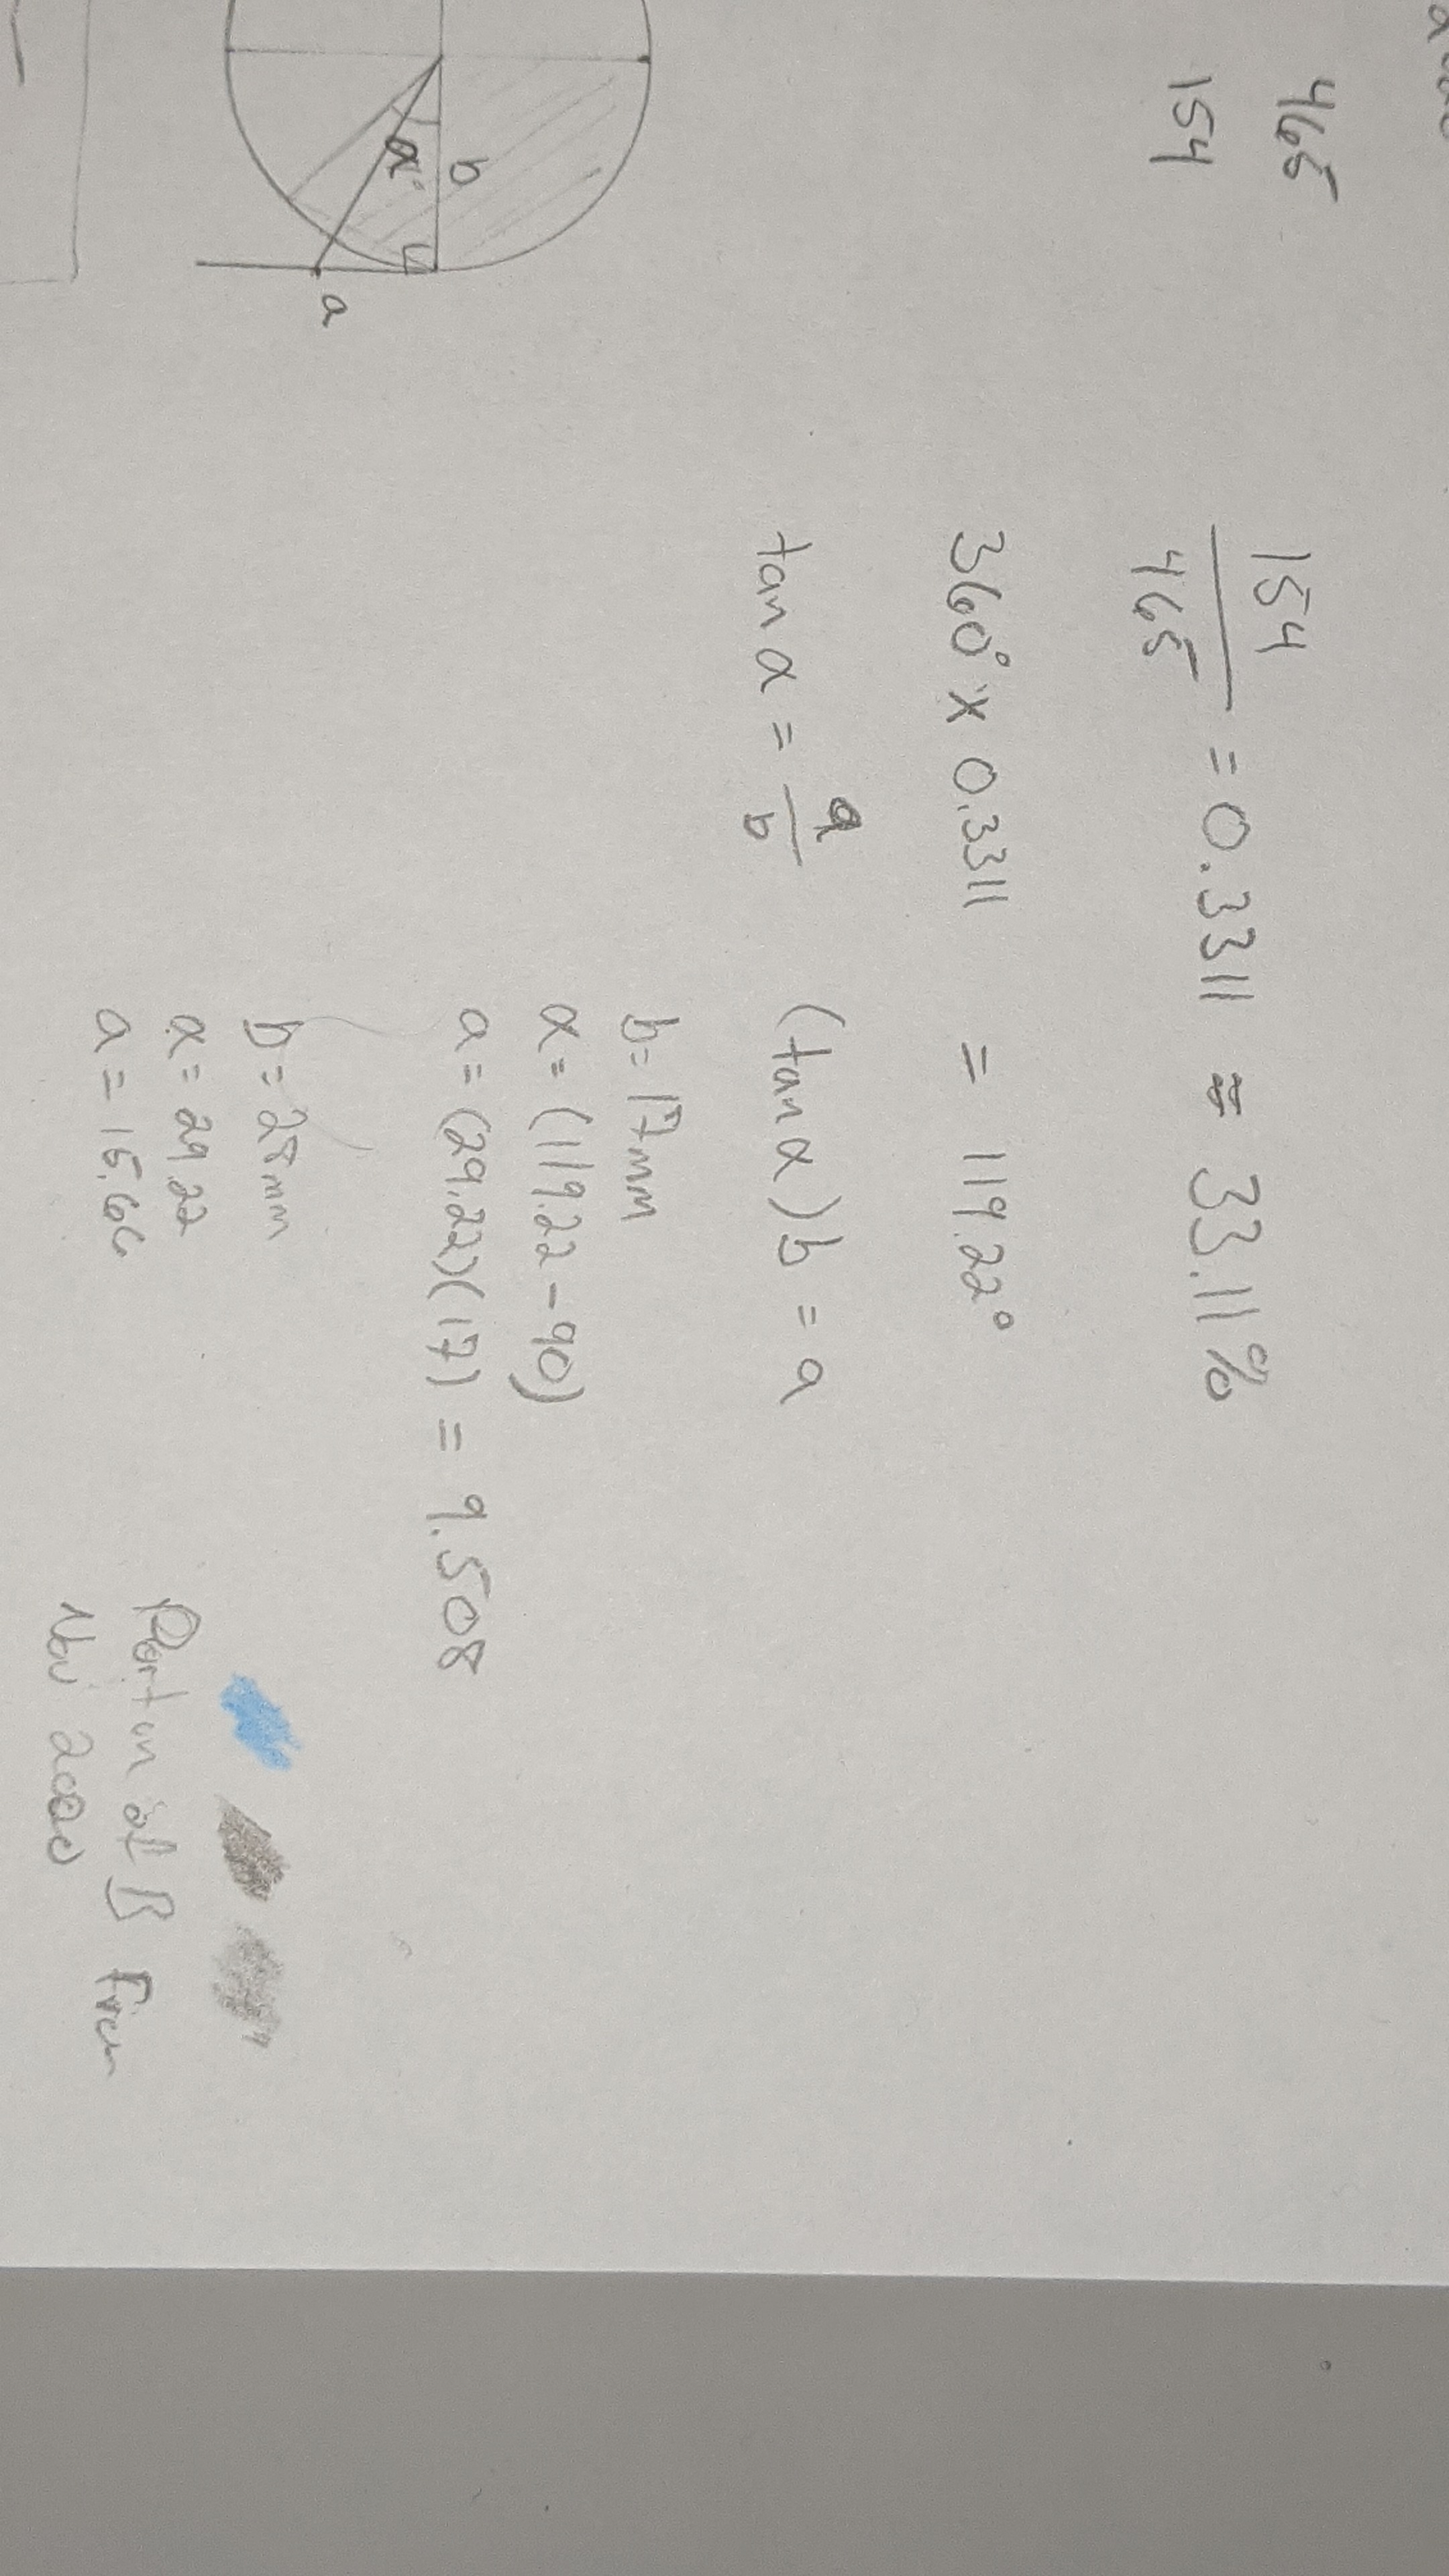 465
154
154
465
= 0.3311 ≈ 33.11%
360° x 0.3311 = 119.22°
tan α = a
b
(tan α) b = a
b= 17mm
α = (119.22 - 90)
a = (29.22)(17) = 9.508
b
α°
a
b = 28mm
α = 29.22
a = 15.66
Portion of B From
Nov 2020